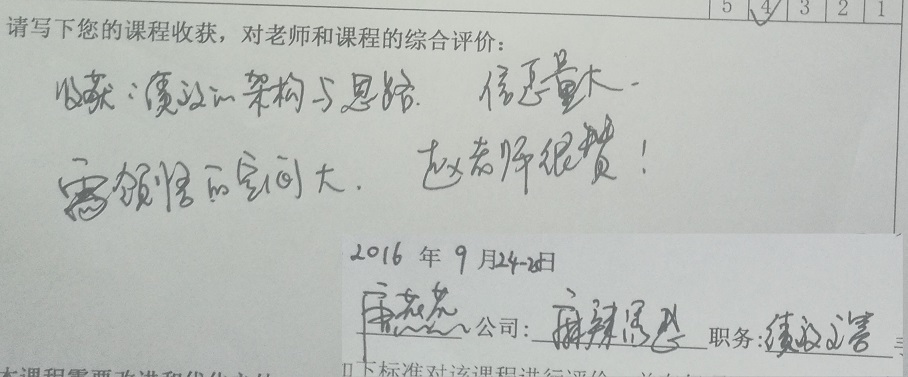 5 4 3 2 1
请写下您的课程收获，对老师和课程的综合评价：
收获：绩效的架构与思路. 信息量大.
需领悟的空间大. 赵老师很赞！
2016 年 9 月24-25日
公司: 麻辣诱惑 职务: 绩效主管
下标准对该课程进行评价